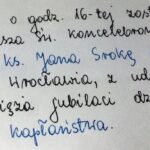 o godz. 16-tej zost
sza św. koncelebrow
ks. Jana Srokę
Wrocławia, z ud
ięża jubilaci dz
kapłaństwa.